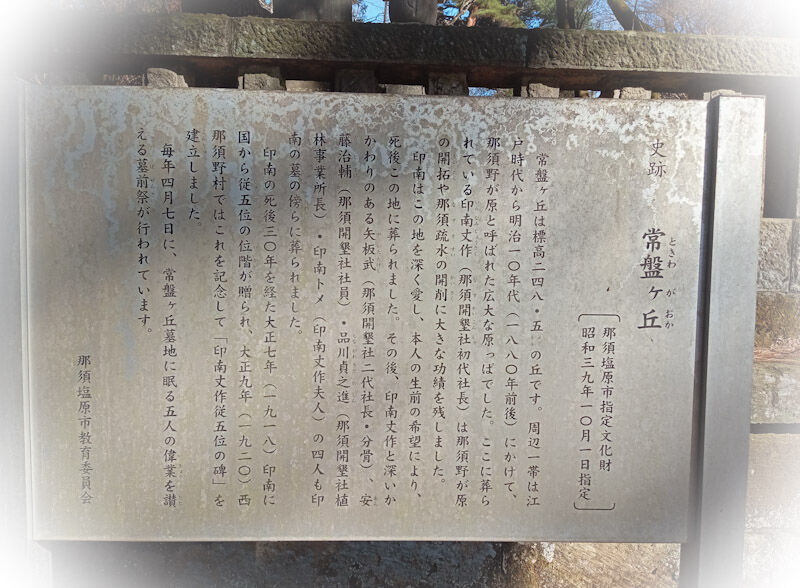 史跡　常盤ヶ丘
ときわ　が　おか
那須塩原市指定文化財
昭和三九年一〇月一日指定
常盤ヶ丘は標高二四八・五㍍の丘です。周辺一帯は江
戸時代から明治一〇年代（一八八〇年前後）にかけて、
那須野が原と呼ばれた広大な原っぱでした。ここに葬ら
れている印南丈作（那須開墾社初代社長）は那須野が原
の開拓や那須疏水の開削に大きな功績を残しました。
印南はこの地を深く愛し、本人の生前の希望により、
死後この地に葬られました。その後、印南丈作と深いか
かわりのある矢板武（那須開墾社二代社長・分骨）、安
藤治輔（那須開墾社社員）・品川貞之進（那須開墾社植
林事業所長）・印南トメ（印南丈作夫人）の四人も印
南の墓の傍らに葬られました。
印南の死後三〇年を経た大正七年（一九一八）印南に
国から従五位の位階が贈られ、大正九年（一九二〇）西
那須野村ではこれを記念して「印南丈作従五位の碑」を
建立しました。
毎年四月七日に、常盤ヶ丘墓地に眠る五人の偉業を讃
える墓前祭が行われています。
那須塩原市教育委員会